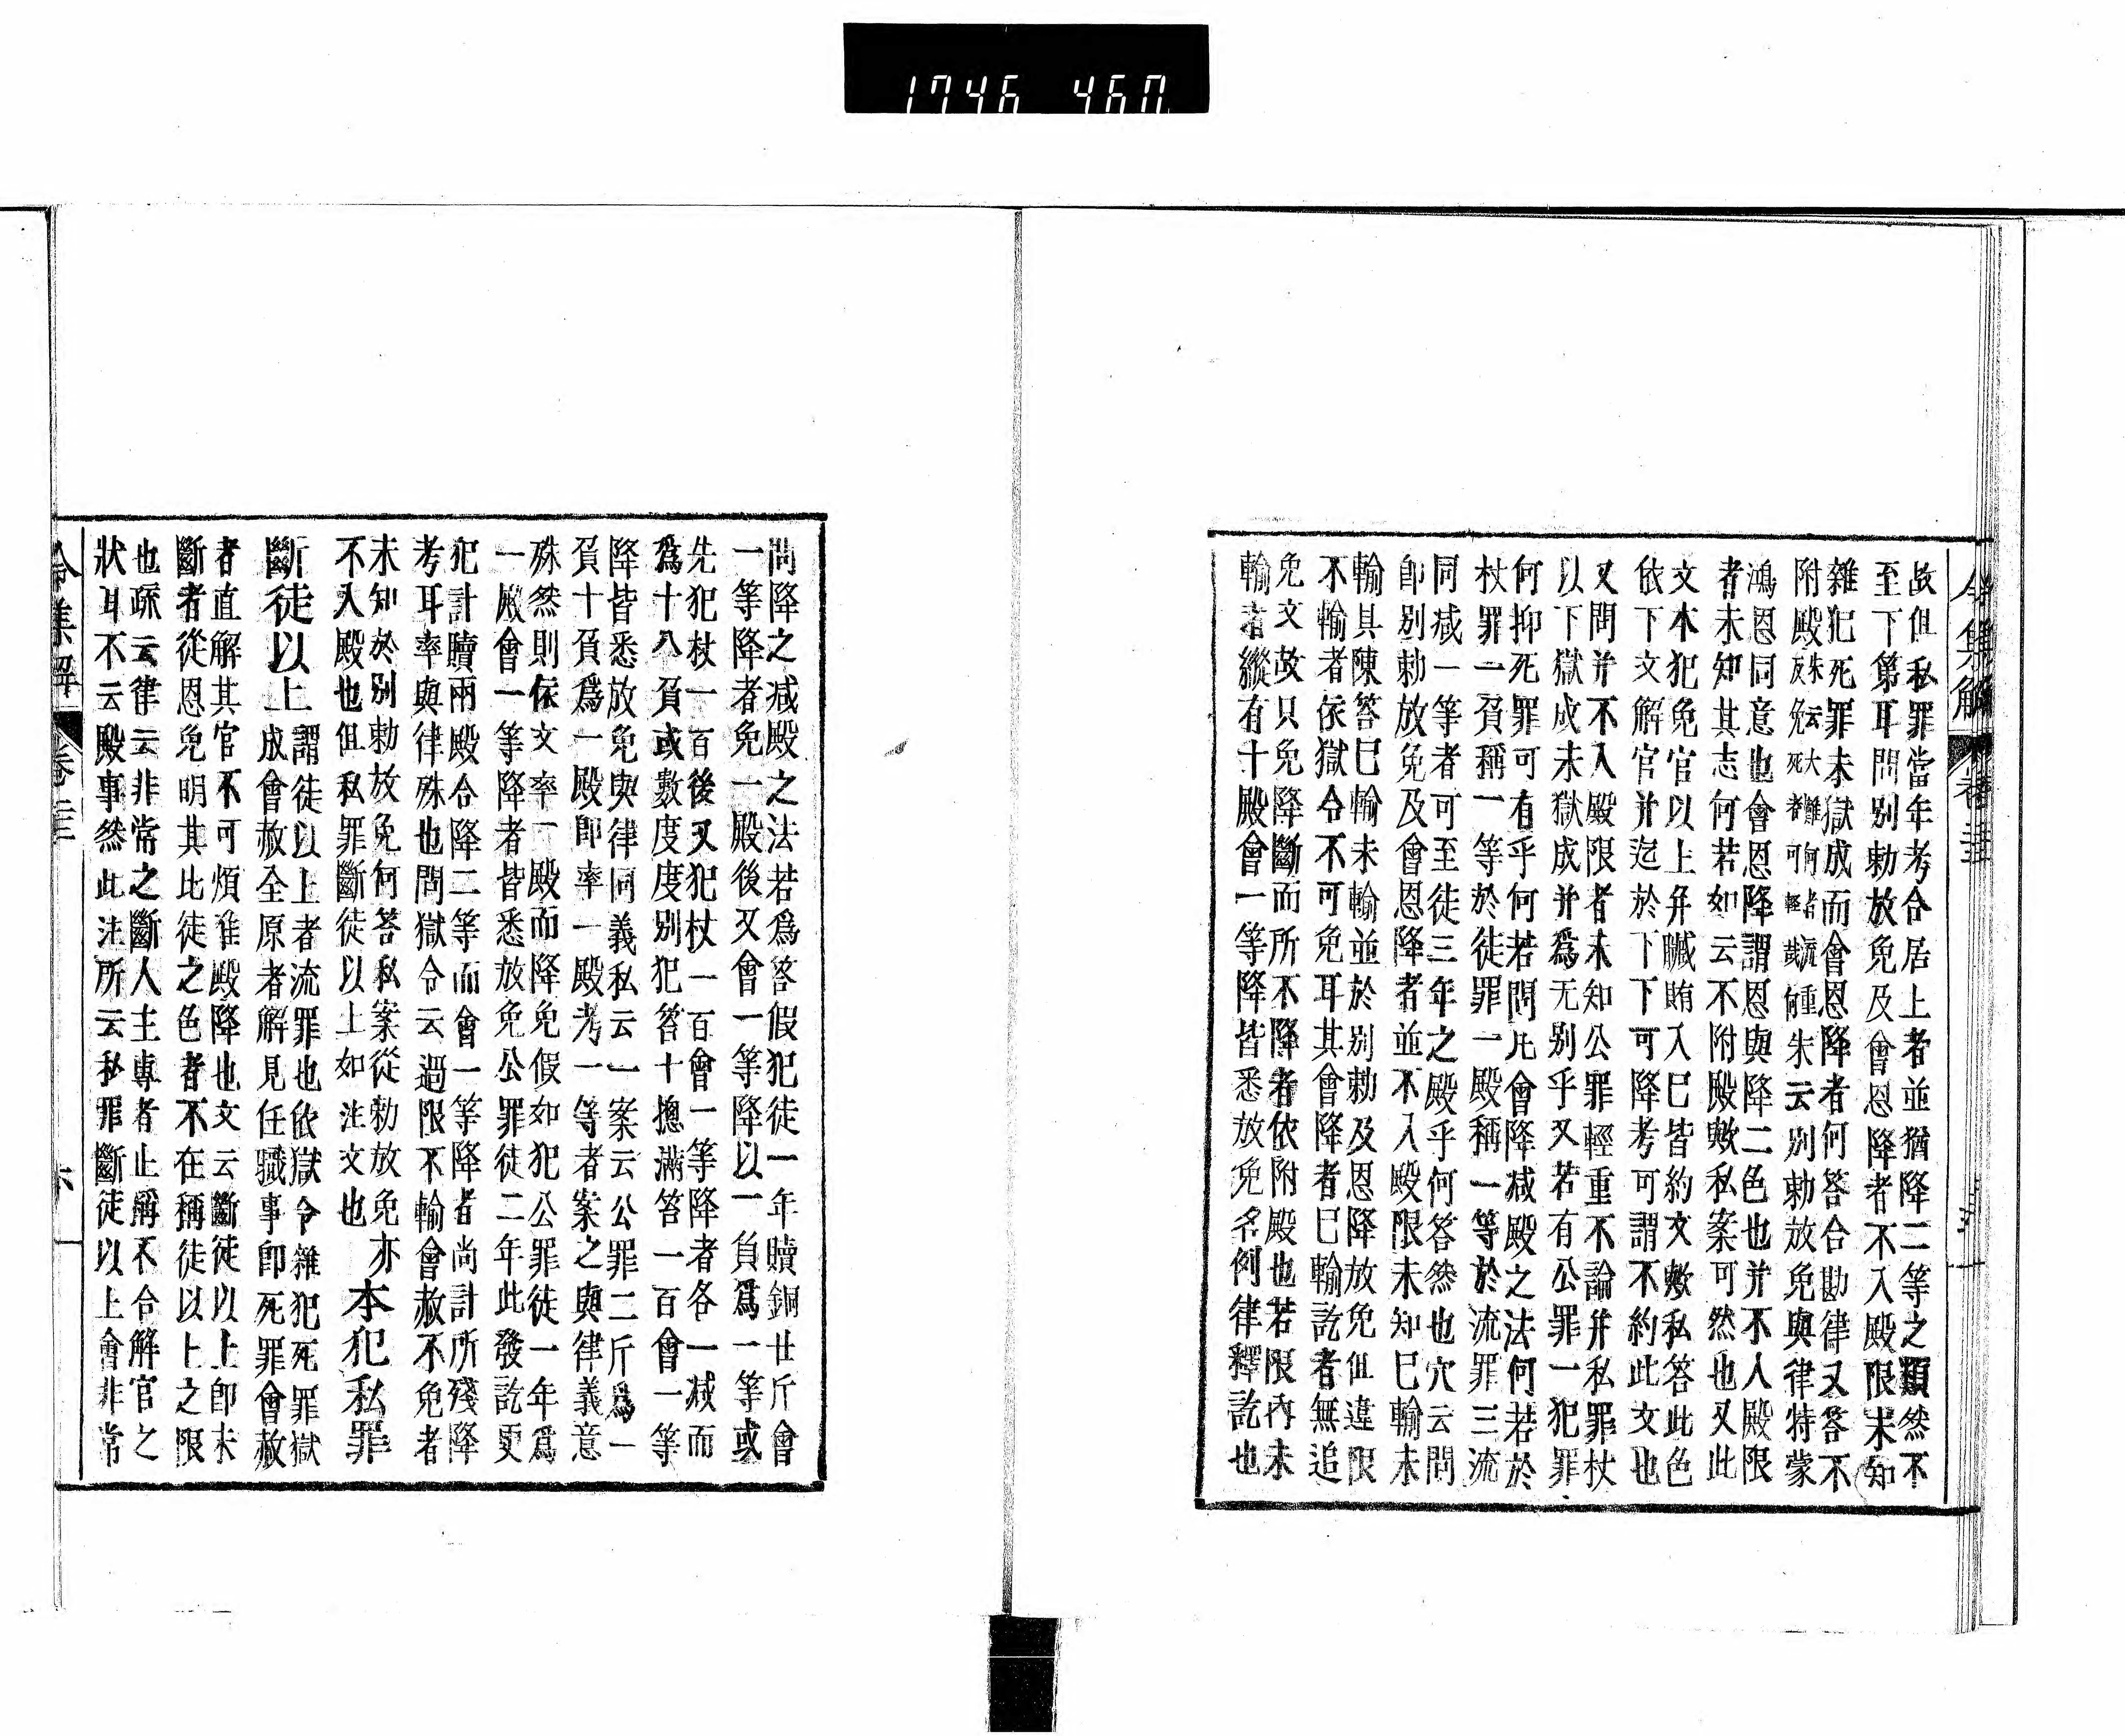 1746 460
令集解 卷
故但私罪當年考合居上者並猶降二等之類然不
至下第耳問別勅放免及會恩降者不入殿限未知
雜犯死罪未獄成而會恩降者何答合勘律又答不
附殿朱云大難何者流重朱云別勅放免與律特蒙
反免死者可輕哉何
鴻恩同意也會恩降謂恩與降二色也并不入殿限
者未知其志何若如云不附殿歟私案可然也又此
文本犯免官以上并贓賄入已皆約文歟私答此色
依下文解官并迄於下下可降考可謂不約此文也
又問并不入殿限者未知公罪輕重不論并私罪杖
以下獄成未獄成并爲无別乎又若有公罪一犯罪
何抑死罪可有乎何若問凡會降减殿之法何若於
杖罪一負稱一等於徒罪一殿稱一等於流罪三流
同减一等者可至徒三年之殿乎何答然也穴云問
即別勅放免及會恩降者並不入殿限未知已輸未
輸具陳答已輸未輸並於別勅及恩降放免但違限
不輸者依獄令不可免耳其會降者已輸訖者無追
免文故只免降斷而所不降者依附殿也若限內未
輸者縱有十殿會一等降皆悉放免名例律釋訖也
問降之减殿之法若爲答假犯徒一年贖銅廿斤會
一等降者免一殿後又會一等降以一負爲一等或
先犯杖一百後又犯杖一百會一等降者各一减而
爲十八負或數度度別犯笞十摠滿笞一百會一等
降皆悉放免與律同義私云一案云公罪二斤爲一
負十負爲一殿即率一殿考一等者案之與律義意
殊然則依文率一殿而降免假如犯公罪徒一年爲
一殿會一等降者皆悉放免公罪徒二年此發訖更
犯計贖兩殿合降二等而會一等降者尚計所殘降
考耳率與律殊也問獄令云過限不輸會赦不免者
未知於別勅放免何答私案從勅放免亦
不入殿也但私罪斷徒以上如注文也
本犯私罪
斷徒以上
謂徒以上者流罪也依獄令雜犯死罪獄
成會赦全原者解見任職事即死罪會赦
者直解其官不可煩准殿降也文云斷徒以上即未
斷者從恩免明其此徒之色者不在稱徒以上之限
也疏云律云非常之斷人主專者止稱不合解官之
狀耳不云殿事然此注所云私罪斷徒以上會非常
令集解 卷